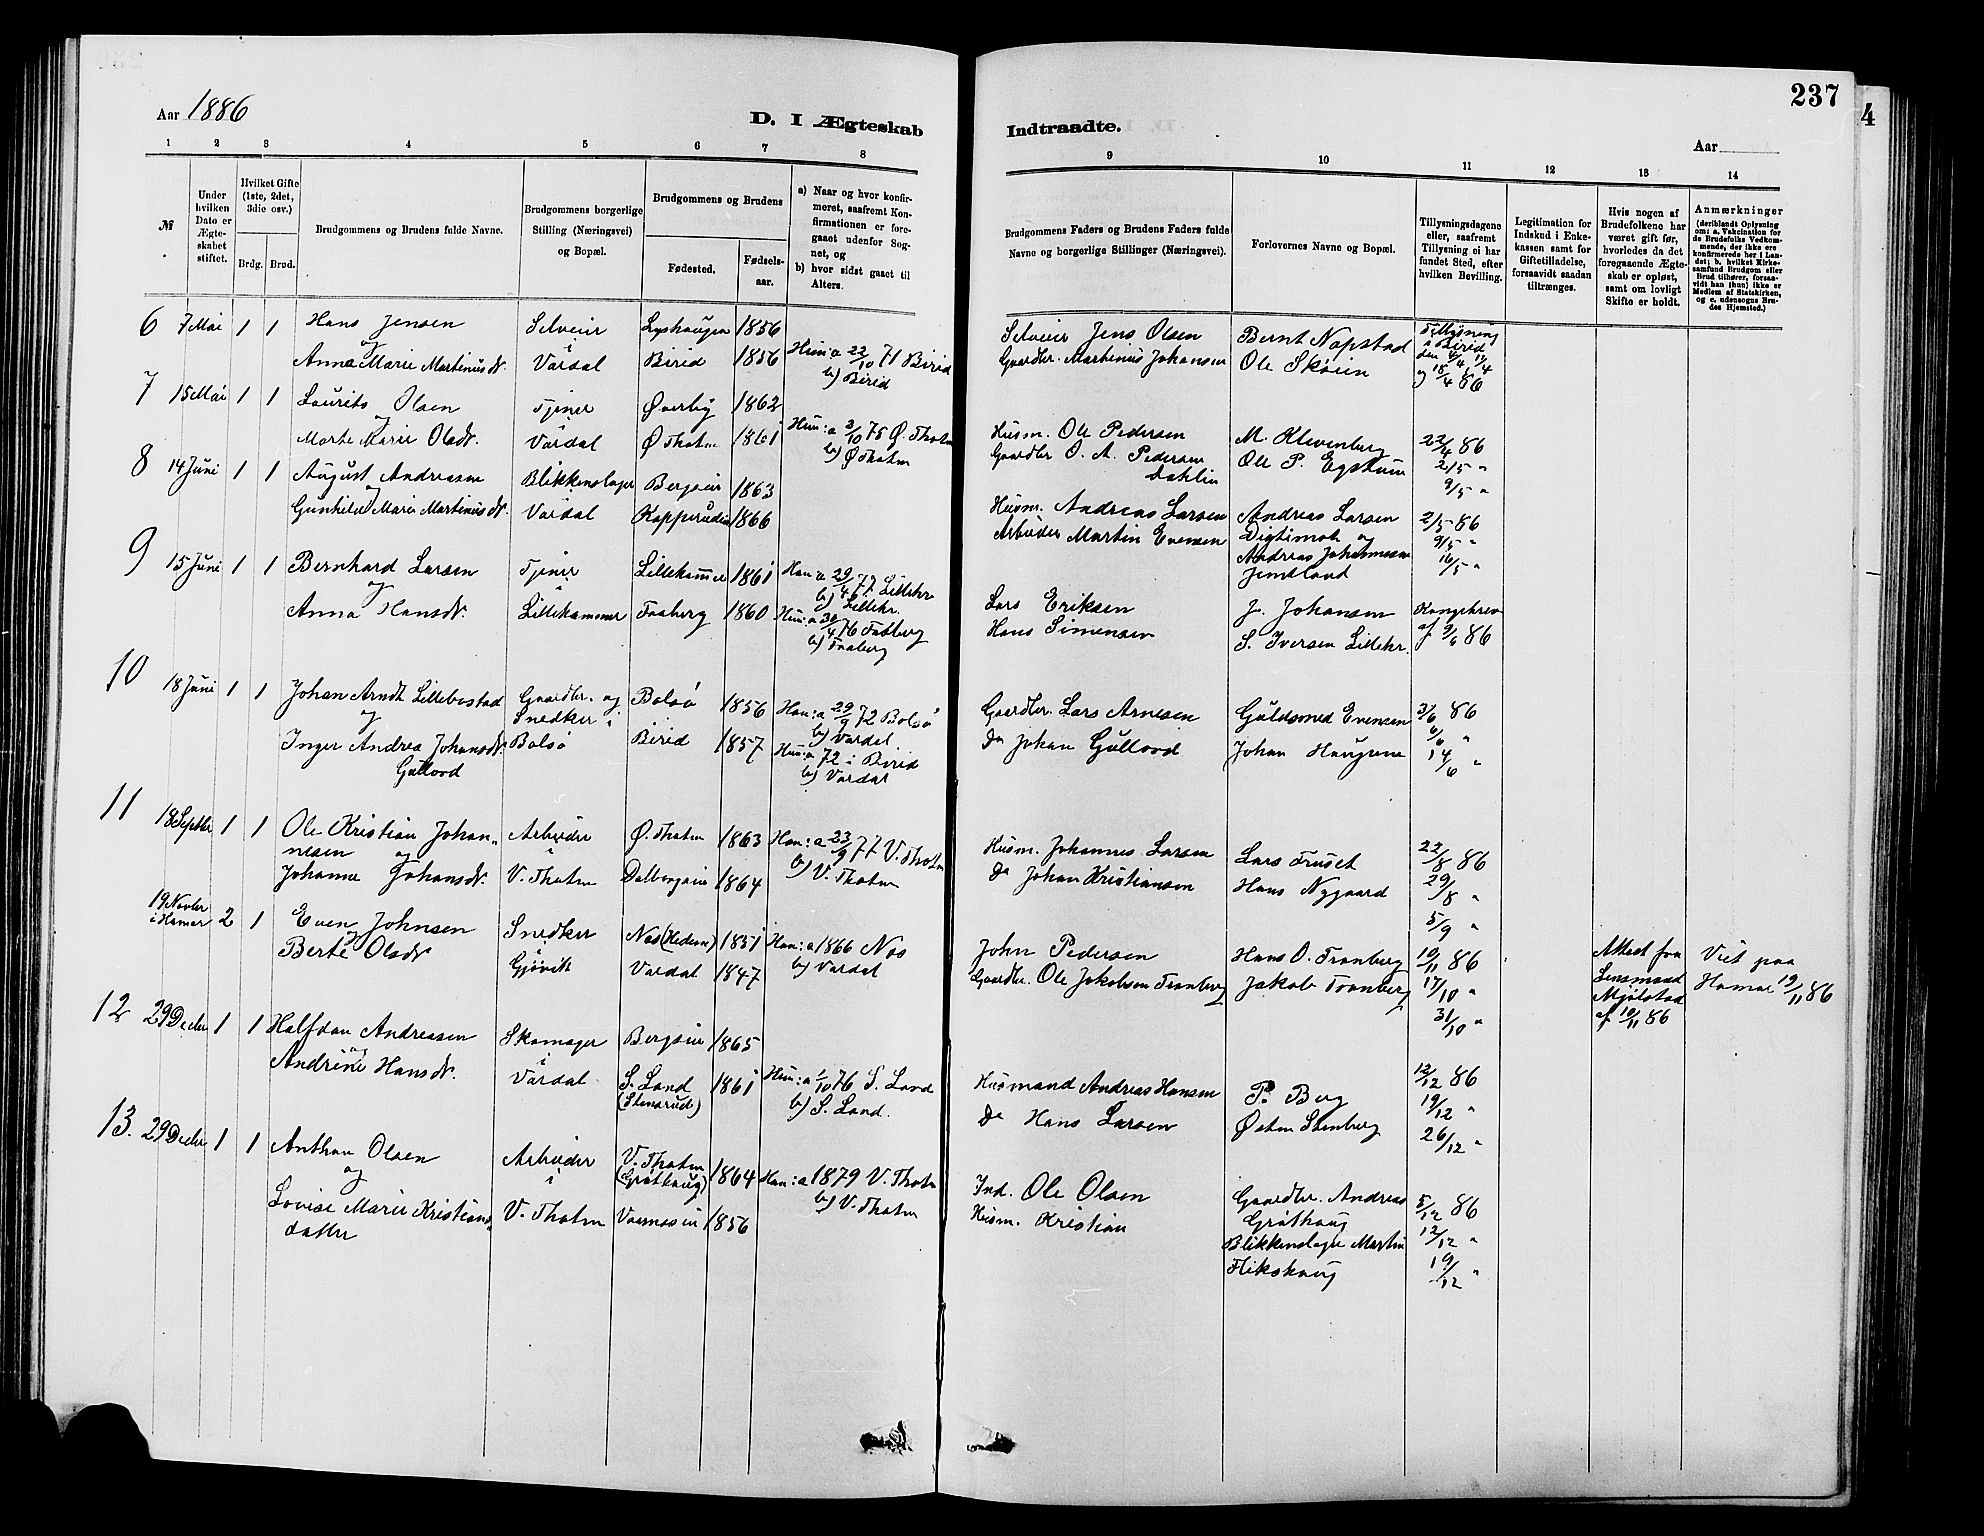 237
4
Aar 1886
D. I Ægteskab
Indtraadte.
Aar
1 2 3 4 5 6 7 8
9 10 11 12 13 14
№
Under hvilken Dato er Ægteskabet stiftet.
Hvilket Gifte (1ste, 2det, 3die osv.)
Brdg. Brud.
Brudgommens og Brudens fulde Navne.
Brudgommens borgerlige Stilling (Næringsvei) og Bopæl.
Brudgommens og Brudens
Fødested.
Fødselsaar.
a) Naar og hvor konfirmeret, saafremt Konfirmationen er foregaaet udenfor Sognet, og
b) hvor sidst gaaet til Alters.
Brudgommens Faders og Brudens Faders fulde Navne og borgerlige Stillinger (Næringsvei).
Forlovernes Navne og Bopæl.
Tillysningsdagene eller, saafremt Tillysning ei har fundet Sted, efter hvilken Bevilling.
Legitimation for Indskud i Enkekassen samt for Giftetilladelse, forsaavidt saadan tiltrænges.
Hvis nogen af Brudefolkene har været gift før, hvorledes da det foregaaende Ægteskab er opløst, samt om lovligt Skifte er holdt.
Anmærkninger (deriblandt Oplysning om: a. Vakcination for de Brudefolks Vedkommende, der ikke ere konfirmerede her i Landet; b. hvilket Kirkesamfund Brudgom eller Brud tilhører, forsaavidt han (hun) ikke er Medlem af Statskirken, og c. udensogns Brudes Hjemsted.)
6 7 Mai 1 1 Hans Jensen Selveier Lyshaugen 1856
og i
Anna Marie Martinusdr. Vardal Birid 1856 Hun: a 22/10 71 Birid
b) Birid
Selveier Jens Olsen Bernt Nøpstad Tillysning
Gaardbr. Martinus Johansen Ole Skøien i Birid
den 4/4, 11/4
og 18/4 86
7 15 Mai 1 1 Laurits Olsen Tjener Øverby 1862
og i
Marte Marie Olsdr. Vardal Ø. Thoten 1861 Hun: a 3/10 75 Ø. Thoten
b) Ø Thoten
Husm. Ole Pedersen M. Klevenberg 22/4 86
Gaardbr O. A. Pedersen Ole P. Egstuen 2/5 "
Dahlin 9/5 "
8 14 Juni 1 1 August Andreasen Blikkenslager Bergseie 1863
og
Gunhild Marie Martinusdr. Vardal Kopperudeie 1866
Husm. Andreas Larsen Andreas Larsen 2/5 86
Arbeider Martin Evensen Digtimob og 9/5 "
Andreas Johannesen 16/5 "
Jemtland
9 15 Juni 1 1 Bernhard Larsen Tjener Lillehammer 1861 Han: a 29/4 77 Lillehr
og i b) Lillehr.
Anna Hansdr. Lillehammer Faaberg 1860 Hun: a 30/4 76 Faaberg
b) Faaberg
Lars Eriksen J. Johansen Kongebrev
Hans Simensen S. Iversen Lillehr. af 9/6 86
10 18 Juni 1 1 Johan Arndt Lillebostad Gaardbr. og Bolsö 1856 Han: a 29/9 72 Bolsö
og Snedker i b) Vardal.
Inger Andrea Johansdr. Bolsö Birid 1857 Hun: a 72 i Birid
Gullord b) Vardal
Gaardbr. Lars Arnesen Guldsmed Evensen 3/6 86
Do Johan Gullord Johan Haugene 6/6 "
14/6 "
11 18 Septbr 1 1 Ole Kristian Johan- Arbeider Ø. Thoten 1863 Han: a 23/9 77 V. Thoten
nesen og i b) V. Thoten
Johanne Johansdr. V. Thoten Dalbergseie 1864
Husm. Johannes Larsen Lars Fruset 22/8 86
Do Johan Kristiansen Hans Nygaard 29/8 "
5/9 "
19 Novbr 2 1 Even Johnsen Snedker Nes (Hedem) 1851 Han: a 1866 Nes
i Hamar og Gjövik Vardal 1847 b) Vardal
Berte Olsdr
John Pedersen Hans O. Tranberg 10/11 86 Attest fra Viet paa
Gaardbr. Ole Jakobsen Tranberg Jakob Tranberg 17/10 " Lensmand Hamar 19/11 86
31/10 " Mjölstad
af 10/11 86
12 29 Decbr 1 1 Halfdan Andreasen Skomager Bergseie 1865
og i
Andrine Hansdr. Vardal S. Land 1861 Hun: a 1/10 76 S. Land
(Stensrud) b) S. Land.
Husmand Andreas Hansen P. Berg 12/12 86
Do Hans Larsen Østen Stenberg 19/12 "
26/12 "
13. 29 Decbr 1 1 Anthon Olsen Arbeider V. Thoten 1864 Han: a 1879 V. Thoten
og i (Gröthaug) b) V. Thoten
Lovise Marie Kristians- V. Thoten Vormaseie 1856
datter
Ind. Ole Olsen Gaardbr. Andreas 5/12 86
Husm. Kristian Gröthaug 12/12 "
Blikkenslager Martin 19/12 "
Flikshaug